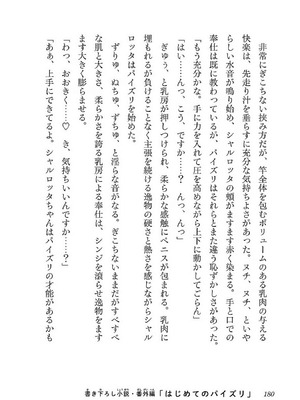 非常にぎこちない挟み方だが、竿全体を包むボリュームのある乳肉の与える
快楽は、先走り汁を垂らすに充分な気持ちよさがあった。ヌチ、ヌチ、といや
らしい水音が鳴り始め、シャルロッタの頬がますます赤く染まる。手と口での
奉仕は既に教わっているが、パイズリはそれらとまた違う恥ずかしさがあった。
「はい……んっ、こう、ですか……？　んっ、んっ」
「もう充分かな。手に力を入れて圧を高めながら上下に動かしてごらん」
ぎゅぅ、と乳房が押しつけられ、柔らかな感触にペニスが包まれる。乳肉に
埋もれるが負けることなく主張を続ける逸物の硬さと熱さを感じながらシャル
ロッタはパイズリを始めた。
ずりゅ、ぬちゅ、ずちゅ、と淫らな音がなる。ぎこちないままだがすべすべ
な肌と大きさ、柔らかさを誇る乳房による奉仕は、シンジを滾らせ逸物をます
ます大きく膨らませる。
「わっ、おおきく……♡　き、気持ちいいんですか……？」
「ああ、上手にできてるよ。シャルロッタちゃんはパイズリの才能があるかも
書き下ろし小説・番外編「はじめてのパイズリ」 180